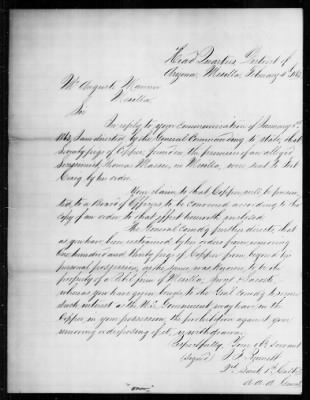 Head Quarters, District of
Arizona, Mesilla, February 4th 186
Mr Auguste
Mesilla.
Sir
In reply to your communication of January 1st
I am directed by the General Commanding to state, that
twenty pigs of Copper, found on the premises of an alleged
Secessionist, Thomas Massie, in Mesilla, were sent to Fort
Craig by his order.
Your claim to that Copper, will be presen-
ted to a Board of Officers to be convened according to the
copy of an order to that effect herewith enclosed.
The General Comdg further directs, that
as you have been restrained by his orders from removing
one hundred and thirty pigs of Copper from beyond his
personal possession, as the same was known to be the
property of a Rebel firm of Mesilla,
unless you have given bonds to the Genl Comdg to secure
such interest as the U.S. Government may have in the
Copper in your possession, the prohibition against your
removing or disposing of it, is withdrawn.
Respectfully, Your obt servant
(Signed)
A.A.A. General